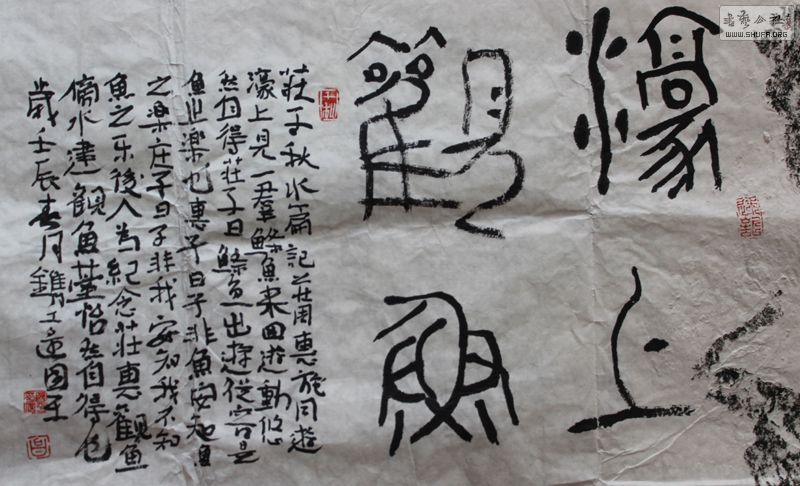 濠上
觀魚
莊子秋水篇記莊周惠施同遊
濠上見一羣鯈魚来回遊動悠
然自得莊子曰鯈魚出游從容是
魚之樂也惠子曰子非魚安知魚
之樂庄子曰子非我安知我不知
魚之乐後人为紀念莊惠觀魚
水建觀魚堂怡然自得也
歲壬辰春月
书艺公社
WWW.SHUFA.ORG